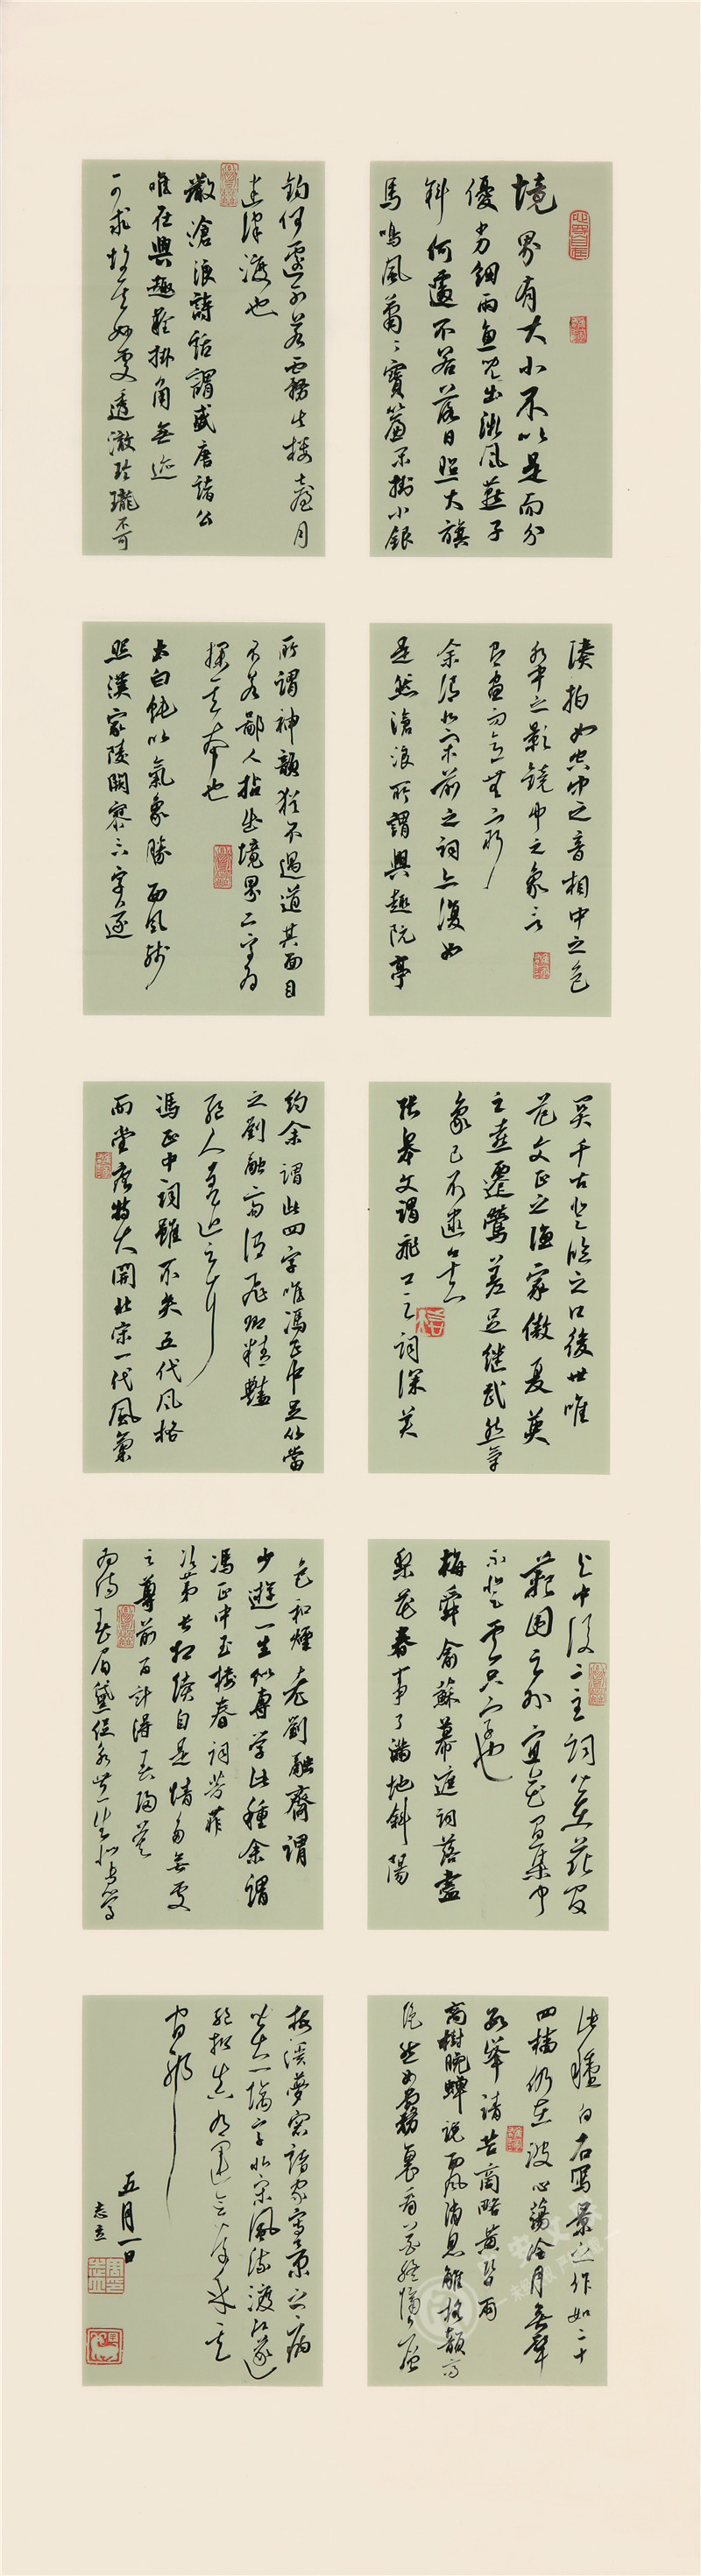 境界有大小不以是而分
優劣細雨魚兒出微風燕子
斜何遽不若落日照大旗
馬鳴風蕭〻寶簾閑掛小銀
鈎何遽不若霧失樓臺月
迷津渡也
嚴滄浪詩話謂盛唐諸公
唯在興趣羚羊掛角無迹
可求故其妙處透澈玲瓏不可
湊拍如空中之音相中之色
水中之影鏡中之象言
有盡而意無窮
余謂北宋前之詞亦復如
是然滄浪所謂興趣阮亭
所謂神韻猶不過道其面目
不若鄙人拈出境界二字為
探其本也
太白純以氣象勝西風殘
照漢家陵闕寥寥八字遂
關千古登臨之口後世唯
范文正之漁家傲夏英
公之喜遷鶯差足繼武然氣
象已不逮矣
張皋文謂飛卿之詞深美
約余謂此四字唯馮正中足以當
之劉融齋謂飛卿精豔
絕人差近之耳
馮正中詞雖不失五代風格
而堂廡特大開北宋一代風氣
與中後二主詞皆在花間
範圍之外宜花間集中
不登其隻字也
梅舜俞蘇幕遮詞落盡
梨花春事了滿地斜陽
色和煙老劉融齋謂
少遊一生似專學此種余謂
馮正中玉樓春詞芳菲
次第長相續自是情多無處
足尊前百計得春歸莫
為傷春眉黛促永叔一生似專學
此種白石寫景之作如二十
四橋仍在波心蕩冷月無聲
數峰清苦商略黃昏雨
高樹晚蟬說西風消息雖格韻高
絕然如霧裏看花終隔一層
梅溪夢窗諸家寫景之病
皆在一隔字北宋風流渡江遂
絕抑真有運會存乎其
間耶
五月一日
志立